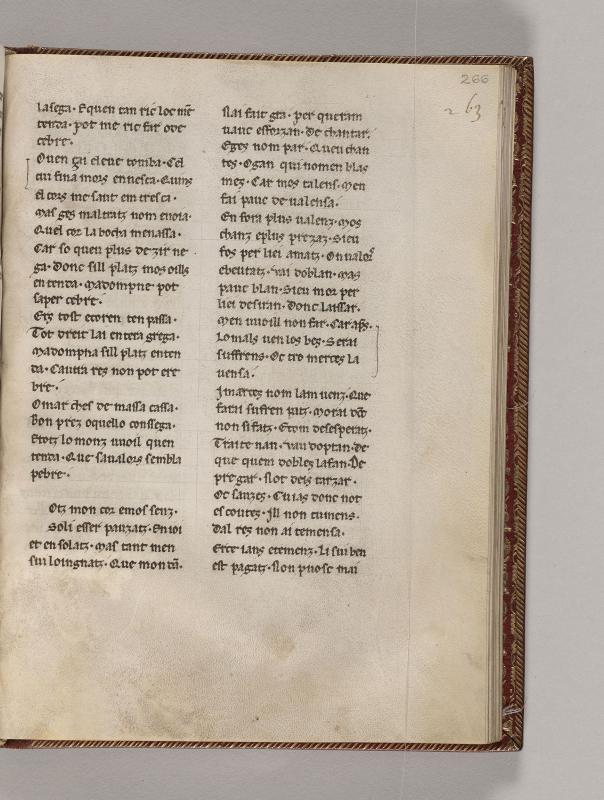 266
263
lasega. Equen tan ric loc mē
tenda. pot me ric far ove
cebre.
Quen çai eleue tomba. Cel
cui fina mors ennesca. Quins
el cors me saut em tresca.
Mas ges maltratz nom enoia.
Quel cor La bocha menassa.
Car so quen plus dezir ne
ga. Donc sill platz mos oills
en tenda. Madompne pot
saper cebre.
Eiz tost ecoren ten passa.
Tot dreit lai entera grega.
Madompna sill platz enten
da. Cautra res non pot ere
bre.
Omar ches de massa cassa.
Bon prez oquello consega.
Etotz lo monz vuoil quen
tenda. Que savalors sembla
pebre.
Otz mon cor emos senz.
Soli esser pauzatz. En ioi
et en solatz. Mas tant men
sui loingnatz. Que mon tū.
Nai fait gra. per queram
vauc esforzan. De chantar.
Eges nom par. Queu chan
tes. Ogan qui nomen blas
mes. Car mos talens. Men
fai pauc de valensa.
En fora plus valenz. Mos
chanz eplus prezaz. Sieu
fos per liei amatz. On valor
ebeutatz. Vai doblan. Mas
pauc blan. Sieu mor per
liei desiran. Donc laissar.
Men vuoill non far. Car ass.
Lo mals uen los bes. Serai
suffrens. Oc tro merces la
uensa.
Jmarces nom lam uenz. Que
farai sufren patz. Morai dōc
non si fatz. Etom desesperatz.
Traire nan. Vau doptan. de
que quem doblez lafan. De
pregar. Not deis tarzar.
Oc sanzes. Cuias donc not
es coutes. Ill non tumens.
Dal res non ai temensa.
Erce ians etemenz. Li sui ben
est pagatz. Non puosc mai